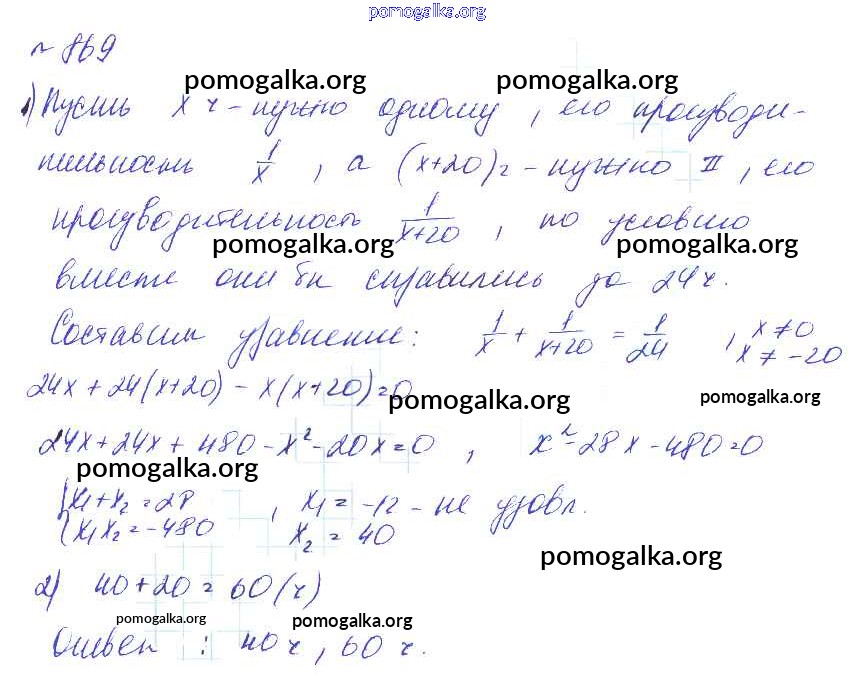 pomogalka.org
№ 869
pomogalka.org pomogalka.org
1) Пусть х ч - нужно одному, его производи-
тельность 1/x, а (x+20) ч - нужно II, его
производительность 1/(x+20), по условию
pomogalka.org pomogalka.org
вместе они бы справились за 24 ч.
Составим уравнение: 1/x + 1/(x+20) = 1/24, x ≠ 0
x ≠ -20
24x + 24(x+20) - x(x+20) = 0
pomogalka.org pomogalka.org
24x + 24x + 480 - x² - 20x = 0, x² - 28x - 480 = 0
pomogalka.org
{x₁ + x₂ = 28, x₁ = -12 - не удовл.
{x₁x₂ = -480 x₂ = 40
pomogalka.org
2) 40 + 20 = 60 (ч)
pomogalka.org pomogalka.org
Ответ: 40 ч, 60 ч.